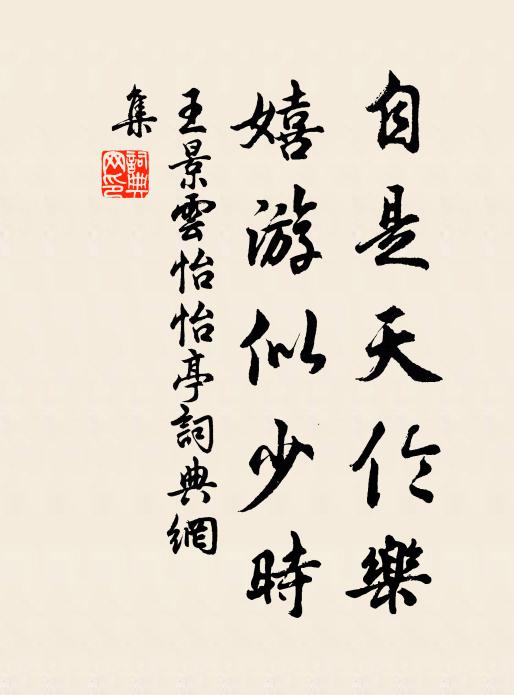 自是天伦樂
嬉游似少時
王景雲怡怡亭詞典網
集
詞典網印